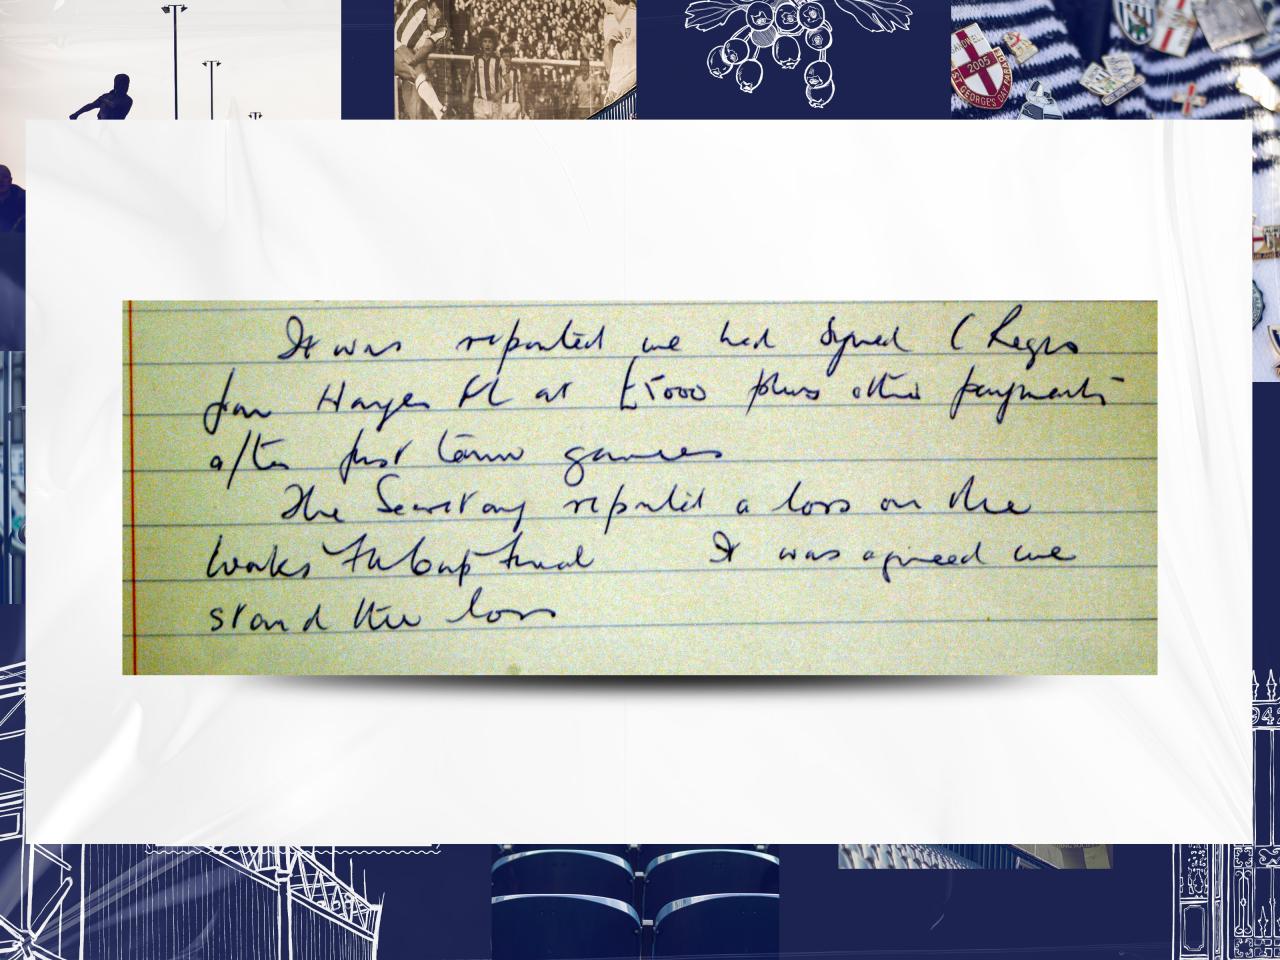 SANDWELL
2005
ST GEORGE'S DAY PARADE
It was reported we had signed C Regis
from Hayes FC at £5000 plus other payments
after first team games
The Secretary reported a loss on the
works FA Cup final It was agreed we
stand the loss
942